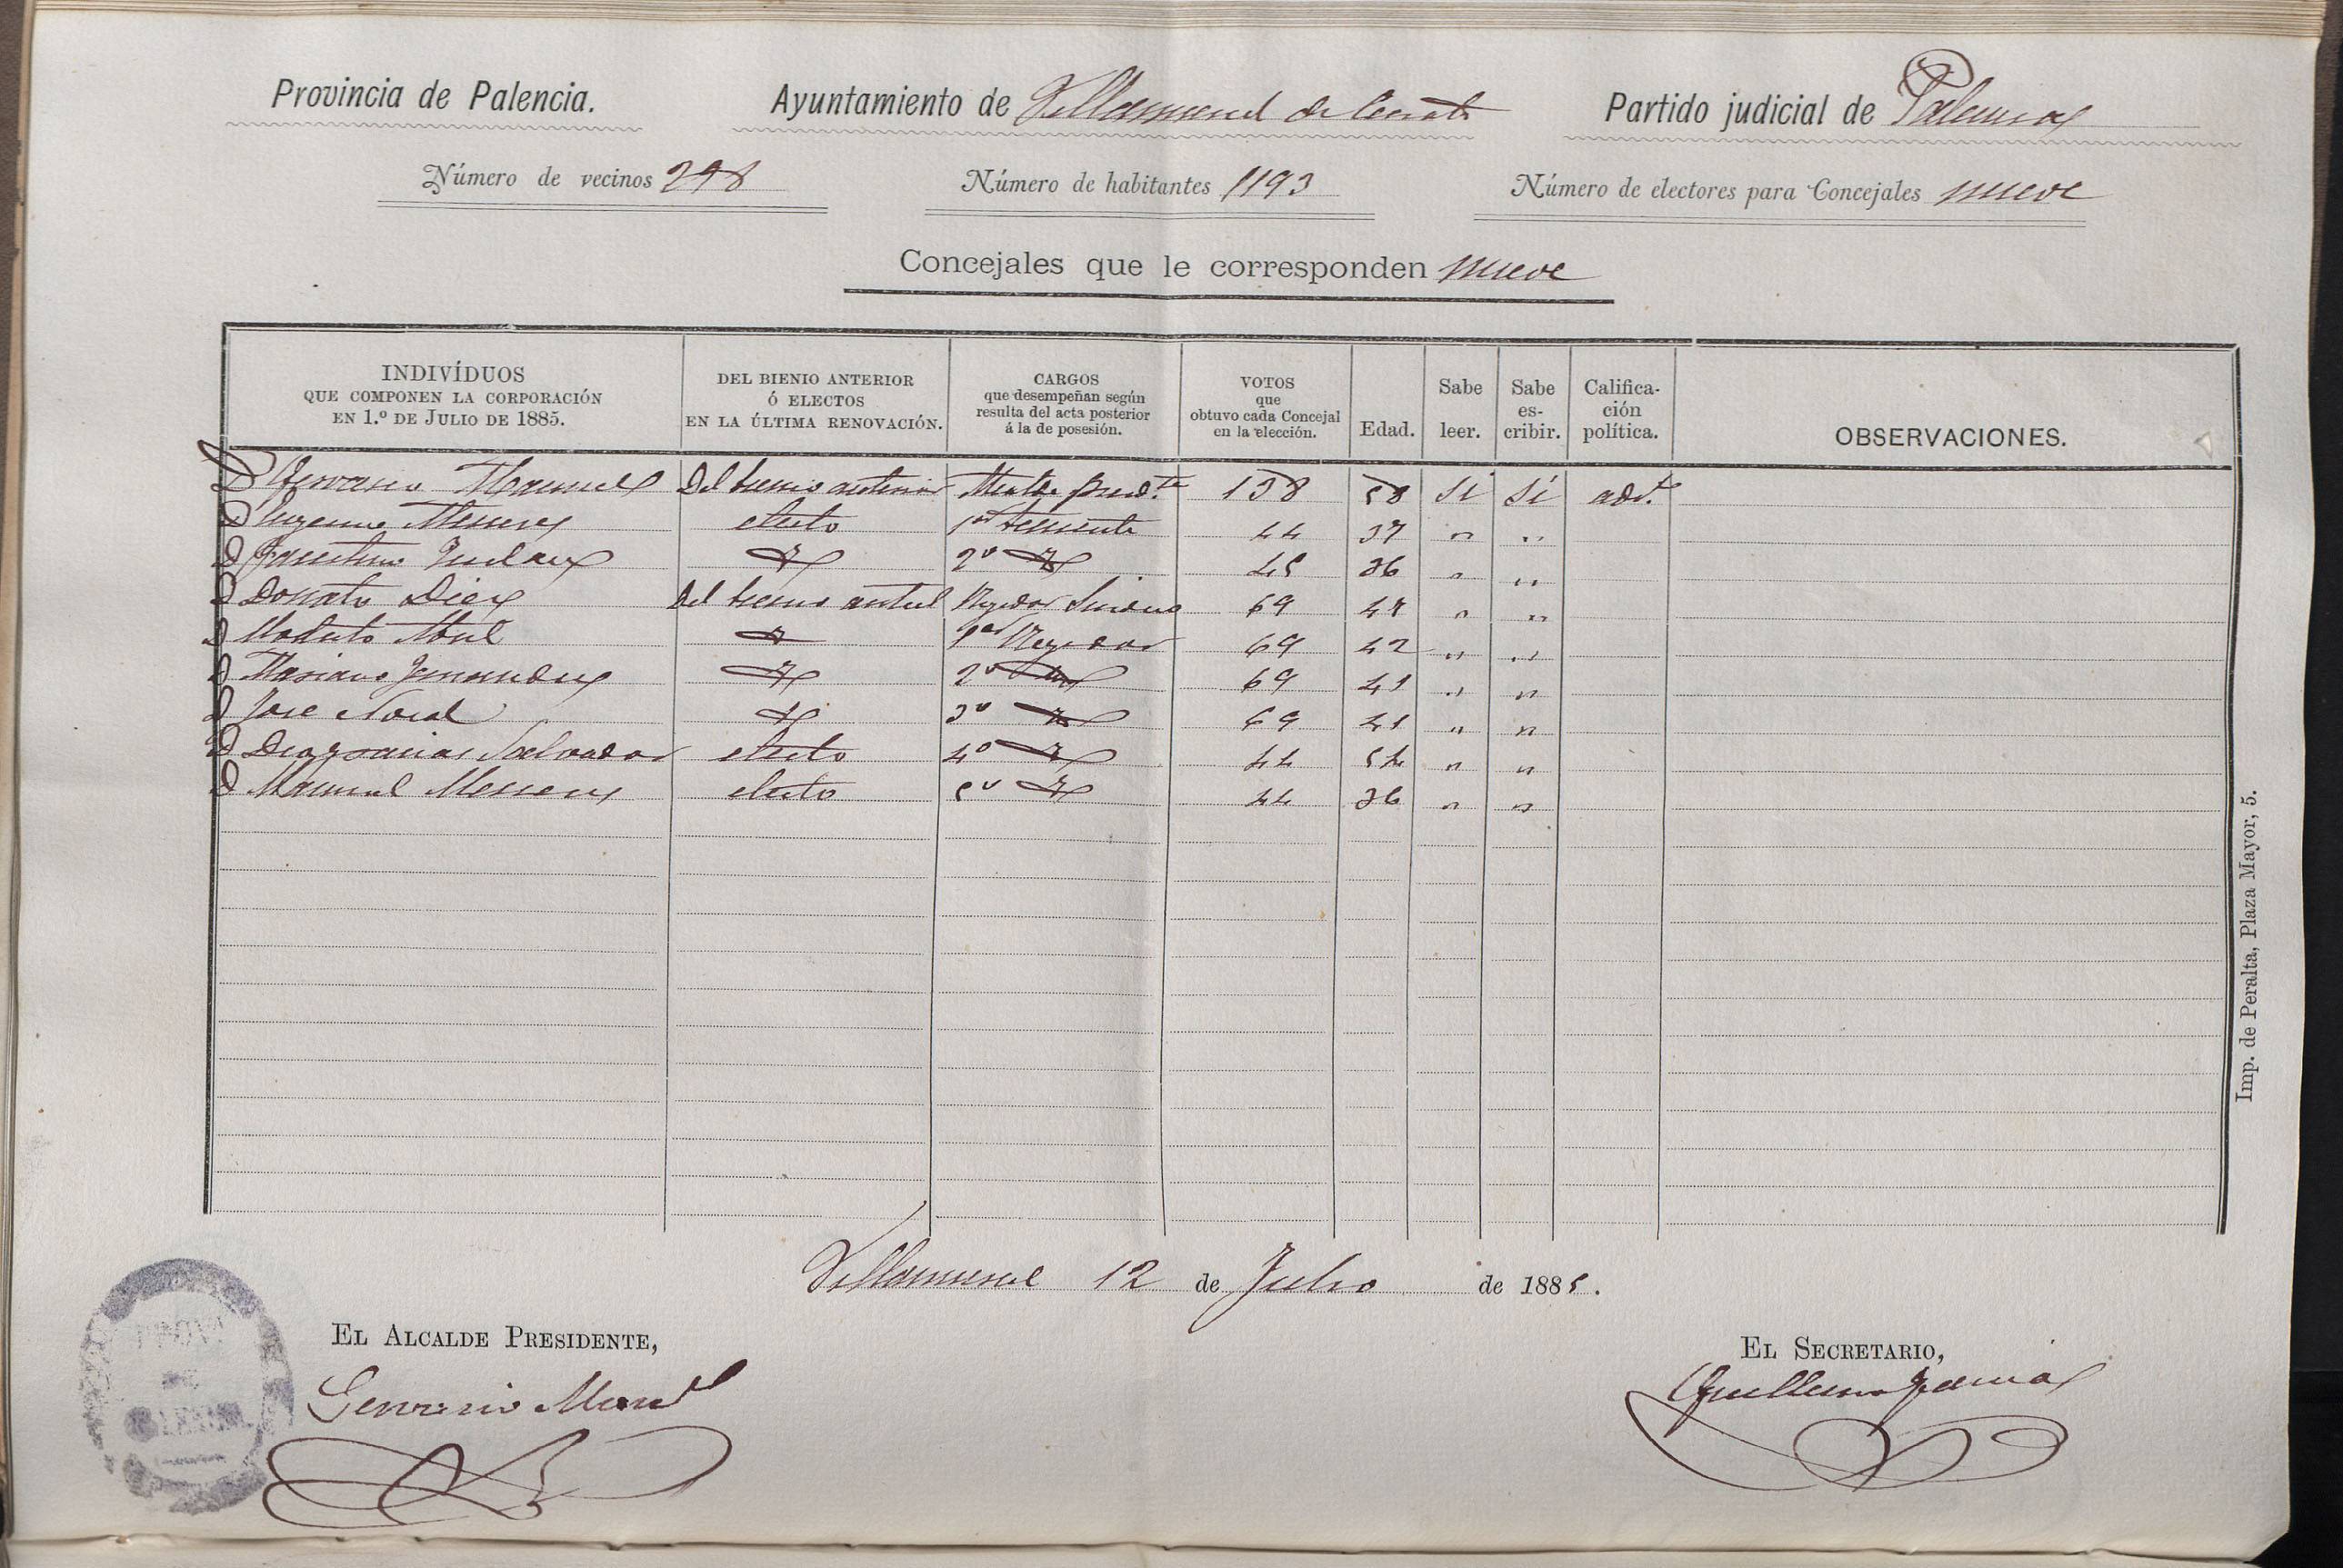 Provincia de Palencia. Ayuntamiento de Villamuriel de Cerrato Partido judicial de Palencia
Número de vecinos 298 Número de habitantes 1193 Número de electores para Concejales nueve
Concejales que le corresponden nueve
INDIVÍDUOS QUE COMPONEN LA CORPORACIÓN EN 1.º DE JULIO DE 1885. DEL BIENIO ANTERIOR Ó ELECTOS EN LA ÚLTIMA RENOVACIÓN. CARGOS que desempeñan según resulta del acta posterior á la de posesión. VOTOS que obtuvo cada Concejal en la elección. Edad. Sabe leer. Sabe es-cribir. Califica-ción política. OBSERVACIONES.
D Gervasio Manuel Del bienio anterior Alcalde presd.te 138 58 Si Si adt.
D Eugenio Meneses electo 1er teniente 44 37 " "
D Faustino 2º 45 36 " "
D Donato Diez Del bienio Regidor Sindico 69 47 " "
D Modesto Abril 1er Regidor 69 42 " "
D Mariano Fernandez 2º 69 41 " "
D Jose Nozal 3º 69 41 " "
D Deogracias Salvador electo 4º 44 54 " "
D Manuel Meneses electo 5º 44 36 " "
Imp. de Peralta, Plaza Mayor, 5.
Villamuriel 12 de Julio de 1885.
EL ALCALDE PRESIDENTE, EL SECRETARIO,
Gervasio Manuel Guillermo Garcia